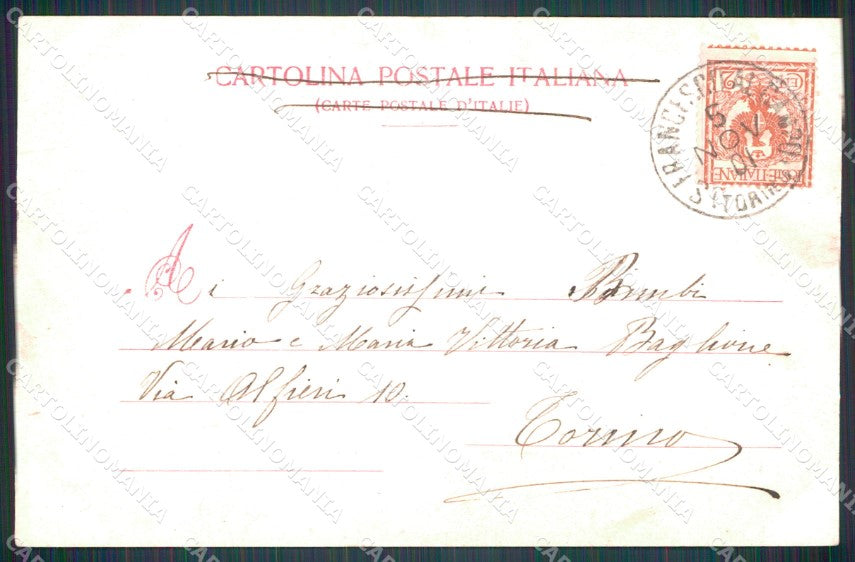 CARTOLINA POSTALE ITALIANA
(CARTE POSTALE D'ITALIE)
5
NOV
01
POSTE ITALIANE
Ai Graziosissimi Bimbi
Mario e Maria Vittoria Baglione
Via Alfieri 10.
Torino
CARTOLINOMANIA